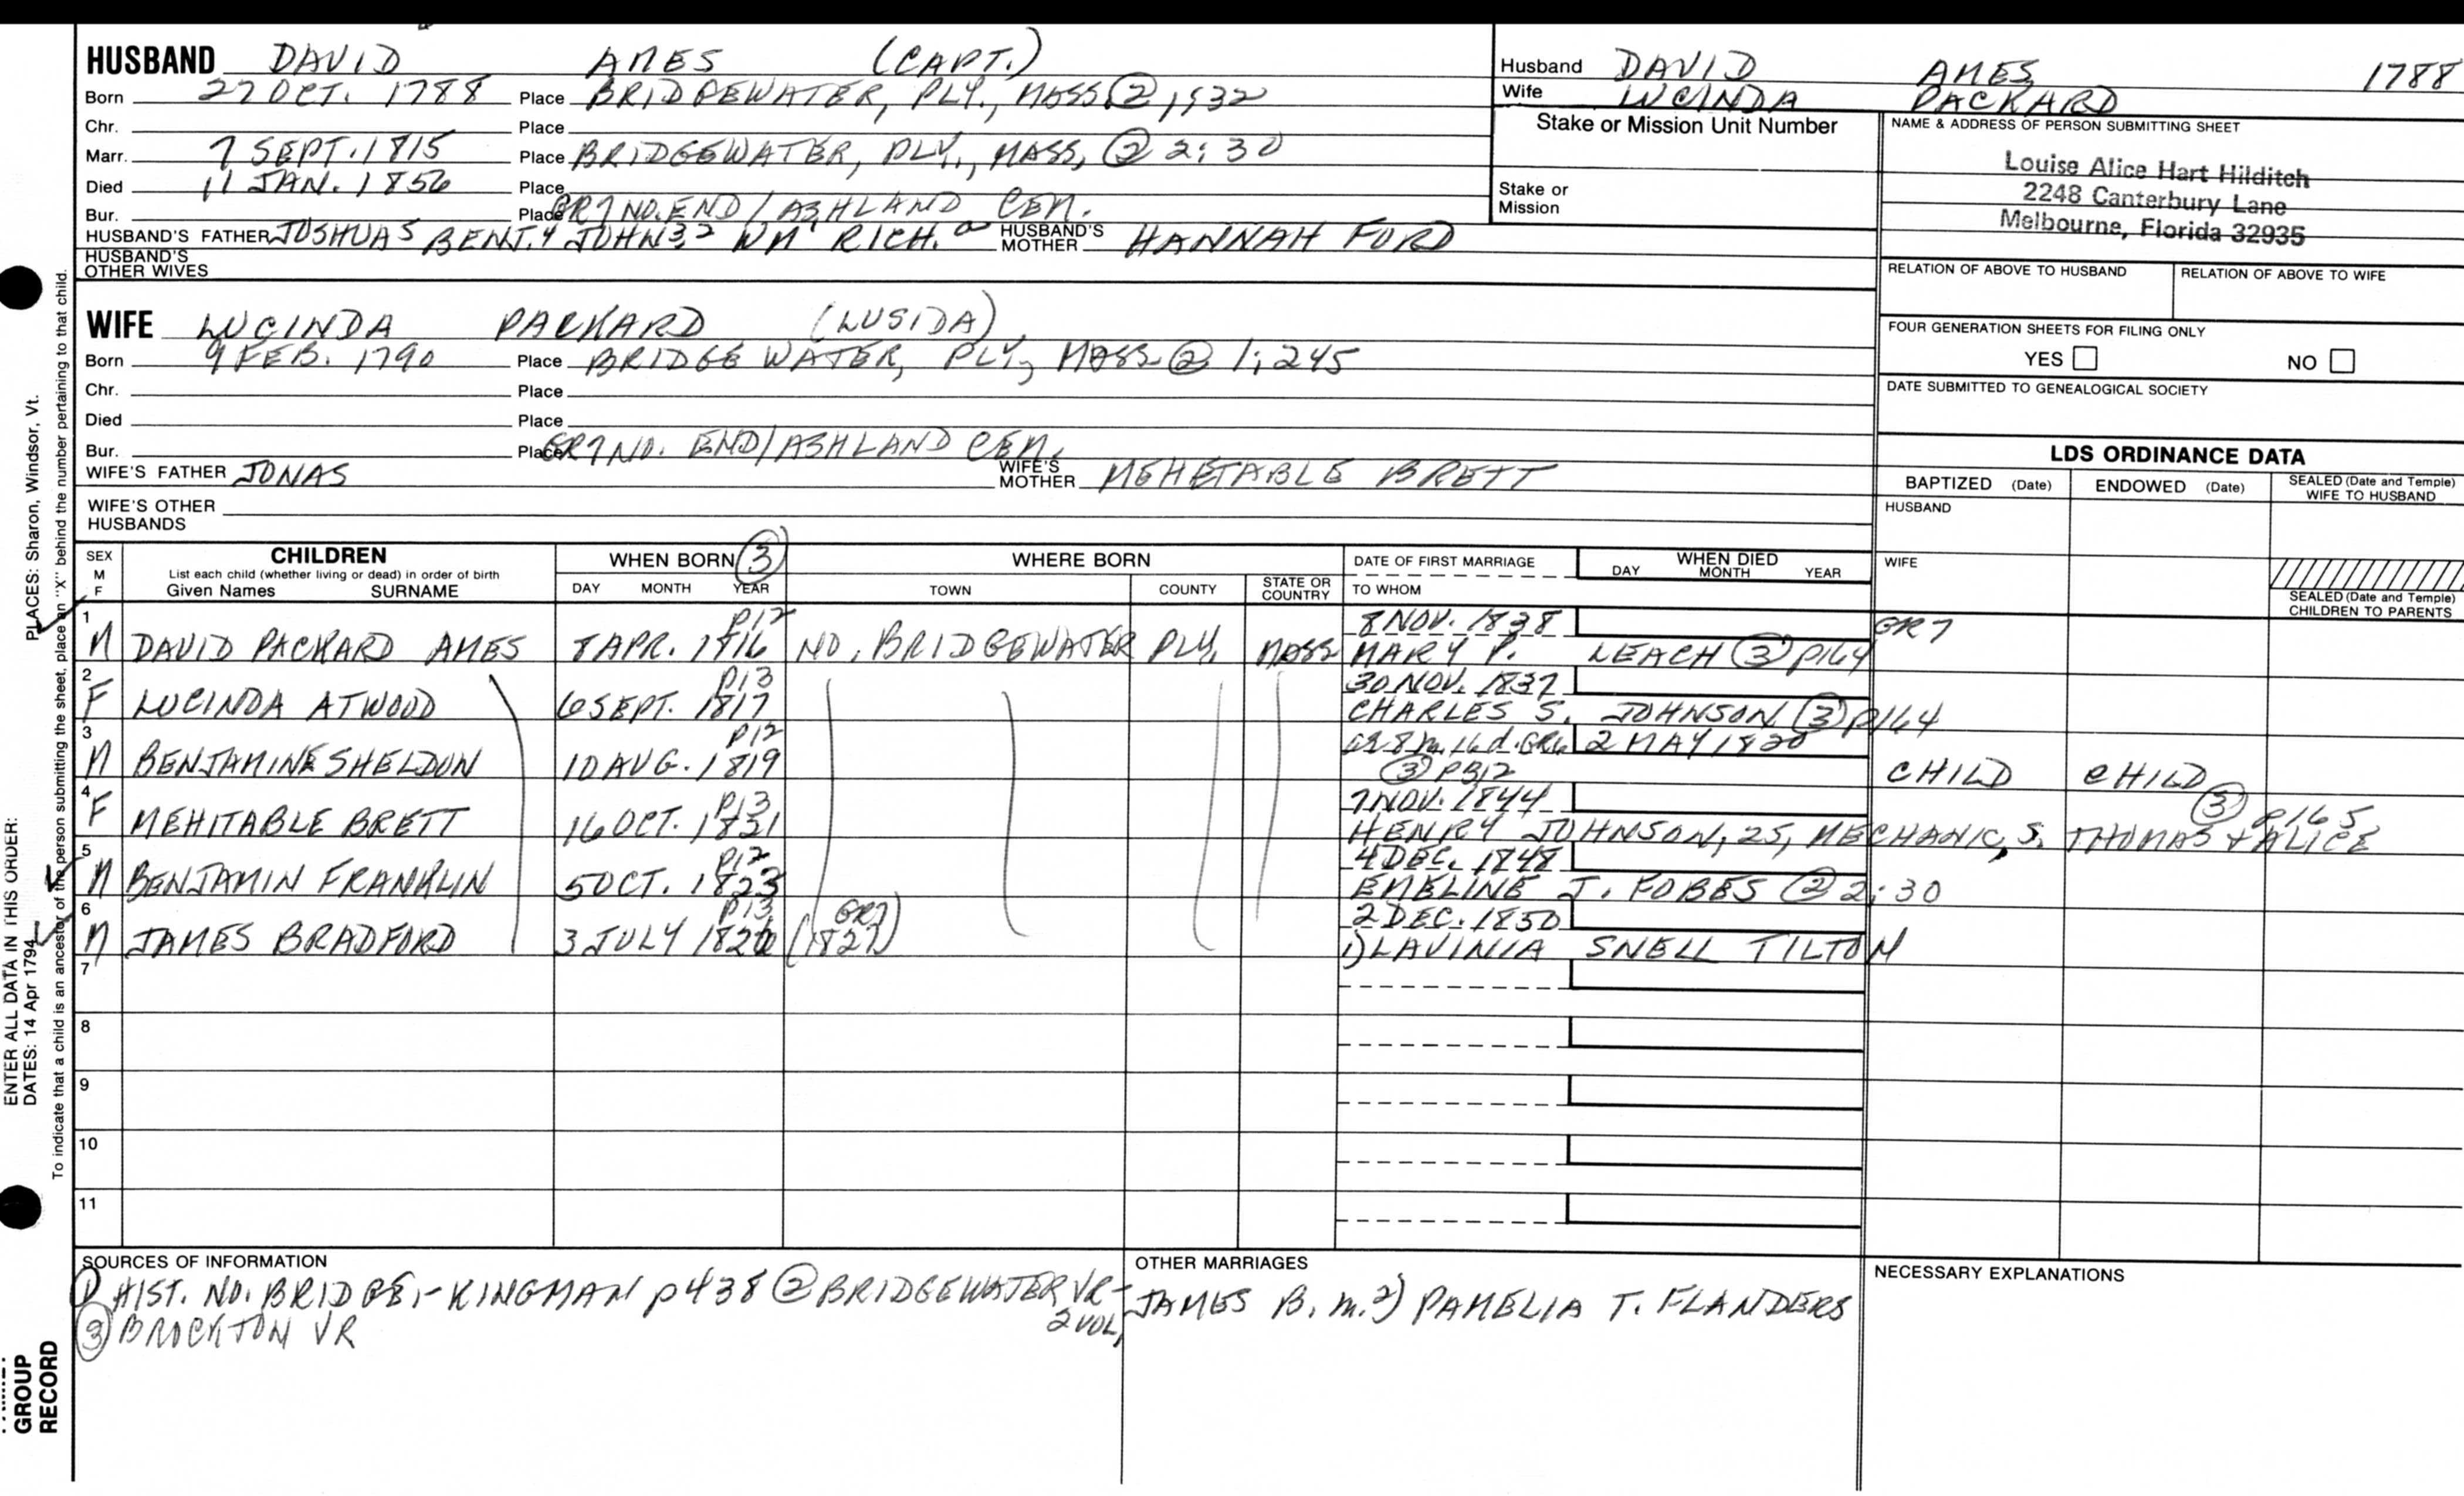 HUSBAND DAVID AMES (CAPT.)
Born 27 OCT. 1788 Place BRIDGEWATER, PLY., MASS @ 1,932
Chr. Place
Marr. 7 SEPT. 1815 Place BRIDGEWATER, PLY., MASS, @ 2:30
Died 11 JAN. 1856 Place
Bur. Place GR7 NO. END/ASHLAND CEM.
HUSBAND'S FATHER JOSHUA5 BENJ.4 JOHN3,2 WM1 RICH.a HUSBAND'S MOTHER HANNAH FORD
HUSBAND'S OTHER WIVES
Husband DAVID AMES 1788
Wife LUCINDA PACKARD
Stake or Mission Unit Number
Stake or Mission
NAME & ADDRESS OF PERSON SUBMITTING SHEET
Louise Alice Hart Hilditch
2248 Canterbury Lane
Melbourne, Florida 32935
RELATION OF ABOVE TO HUSBAND RELATION OF ABOVE TO WIFE
FOUR GENERATION SHEETS FOR FILING ONLY
YES NO
DATE SUBMITTED TO GENEALOGICAL SOCIETY
WIFE LUCINDA PACKARD (LUSIDA)
Born 9 FEB. 1790 Place BRIDGEWATER, PLY, MASS @ 1;245
Chr. Place
Died Place
Bur. Place GR7 NO. END/ASHLAND CEM.
WIFE'S FATHER JONAS WIFE'S MOTHER MEHETABLE BRETT
WIFE'S OTHER HUSBANDS
LDS ORDINANCE DATA
BAPTIZED (Date) ENDOWED (Date) SEALED (Date and Temple) WIFE TO HUSBAND
HUSBAND
WIFE
SEALED (Date and Temple) CHILDREN TO PARENTS
SEX M F CHILDREN WHEN BORN 3 WHERE BORN DATE OF FIRST MARRIAGE WHEN DIED
List each child (whether living or dead) in order of birth
Given Names SURNAME DAY MONTH YEAR TOWN COUNTY STATE OR COUNTRY TO WHOM DAY MONTH YEAR
1 P12 8 NOV. 1838 GR7
M DAVID PACKARD AMES 8 APR. 1816 NO. BRIDGEWATER PLY. MASS MARY P. LEACH 3 P164
2 P13 30 NOV. 1837
F LUCINDA ATWOOD 6 SEPT. 1817 CHARLES S. JOHNSON 3 P164
3 P12 ae 8m. 16d. GR6 2 MAY 1820
M BENJAMINE SHELDON 10 AUG. 1819 3 P312 CHILD CHILD
4 P13 7 NOV. 1844 3 P165
F MEHITABLE BRETT 16 OCT. 1821 HENRY JOHNSON, 25, MECHANIC, S. THOMAS + ALICE
5 P12 4 DEC. 1848
M BENJAMIN FRANKLIN 5 OCT. 1823 EMELINE J. FOBES 2 2:30
6 P13 GR7 2 DEC. 1850
M JAMES BRADFORD 3 JULY (1827) 1) LAVINIA SNELL TILTON
7
8
9
10
11
SOURCES OF INFORMATION
1 HIST. NO. BRIDGE.-KINGMAN p438 2 BRIDGEWATER VR- 2 VOL,
3 BROCKTON VR
OTHER MARRIAGES
JAMES B. m. 2) PAMELIA T. FLANDERS
NECESSARY EXPLANATIONS
To indicate that a child is an ancestor of the person submitting the sheet, place an "X" behind the number pertaining to that child.
PLACES: Sharon, Windsor, Vt.
ENTER ALL DATA IN THIS ORDER:
DATES: 14 Apr 1794
GROUP
RECORD